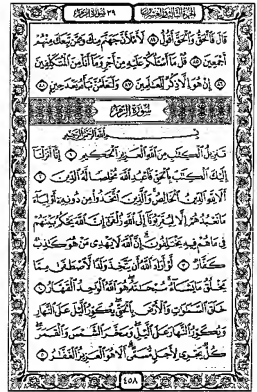 الجزء الثالث والعشرون ٣٩ سورة الزمر
قَالَ فَٱلْحَقُّ وَٱلْحَقَّ أَقُولُ ٨٤ لَأَمْلَأَنَّ جَهَنَّمَ مِنكَ وَمِمَّن تَبِعَكَ مِنْهُمْ
أَجْمَعِينَ ٨٥ قُلْ مَآ أَسْـَٔلُكُمْ عَلَيْهِ مِنْ أَجْرٍ وَمَآ أَنَا۠ مِنَ ٱلْمُتَكَلِّفِينَ
٨٦ إِنْ هُوَ إِلَّا ذِكْرٌ لِّلْعَٰلَمِينَ ٨٧ وَلَتَعْلَمُنَّ نَبَأَهُۥ بَعْدَ حِينٍۭ ٨٨
سورة الزمر
بِسْمِ ٱللَّهِ ٱلرَّحْمَٰنِ ٱلرَّحِيمِ
تَنزِيلُ ٱلْكِتَٰبِ مِنَ ٱللَّهِ ٱلْعَزِيزِ ٱلْحَكِيمِ ١ إِنَّآ أَنزَلْنَآ
إِلَيْكَ ٱلْكِتَٰبَ بِٱلْحَقِّ فَٱعْبُدِ ٱللَّهَ مُخْلِصًا لَّهُ ٱلدِّينَ ٢
أَلَا لِلَّهِ ٱلدِّينُ ٱلْخَالِصُ وَٱلَّذِينَ ٱتَّخَذُوا۟ مِن دُونِهِۦٓ أَوْلِيَآءَ
مَا نَعْبُدُهُمْ إِلَّا لِيُقَرِّبُونَآ إِلَى ٱللَّهِ زُلْفَىٰٓ إِنَّ ٱللَّهَ يَحْكُمُ بَيْنَهُمْ
فِى مَا هُمْ فِيهِ يَخْتَلِفُونَ إِنَّ ٱللَّهَ لَا يَهْدِى مَنْ هُوَ كَٰذِبٌ
كَفَّارٌ ٣ لَّوْ أَرَادَ ٱللَّهُ أَن يَتَّخِذَ وَلَدًا لَّٱصْطَفَىٰ مِمَّا
يَخْلُقُ مَا يَشَآءُ سُبْحَٰنَهُۥ هُوَ ٱللَّهُ ٱلْوَٰحِدُ ٱلْقَهَّارُ ٤
خَلَقَ ٱلسَّمَٰوَٰتِ وَٱلْأَرْضَ بِٱلْحَقِّ يُكَوِّرُ ٱلَّيْلَ عَلَى ٱلنَّهَارِ
وَيُكَوِّرُ ٱلنَّهَارَ عَلَى ٱلَّيْلِ وَسَخَّرَ ٱلشَّمْسَ وَٱلْقَمَرَ
كُلٌّ يَجْرِى لِأَجَلٍ مُّسَمًّى أَلَا هُوَ ٱلْعَزِيزُ ٱلْغَفَّٰرُ ٥
٤٥٨